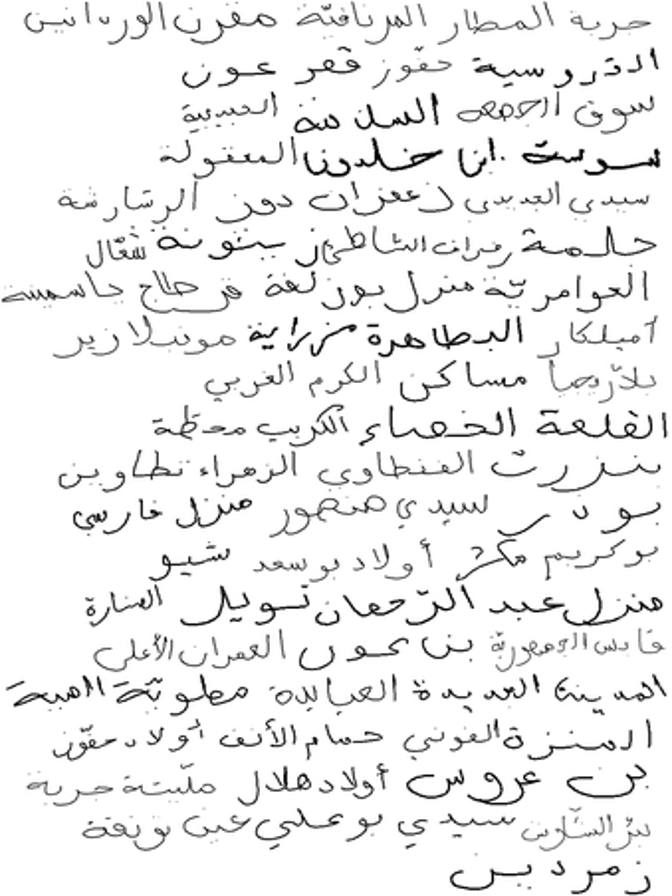 جربة المطار المرناقيّة مقرن الوردانين
القروسية حفوز قصر عون
سوق الجمعة السلامة الحبيبية
سوسة ابن خلدون المعقولة
سيدي الجديدي زعفران دوز الرشارشة
حلمة رمرات الشاطئ زيتونة شعّال
العوامريّة منزل بوزلفة قرطاج ياسمينة
أميلكار البطاهرة مزراية موندلازير
بلاريجيا مساكن الكرم الغربي
القلعة الخضراء الكريب محطّة
بنزرت القنطاوي الزهراء تطاوين
بوذر سيدي منصور منزل فارسي
بوكريم مكثر أولاد بوسعد شيو
منزل عبد الرّحمان نسويل المنارة
قابس الجمهوريّة بن عون العمران الأعلى
المدينة الجديدة العبابدة مطويّة الهبة
المنزه القوني حمام الأنف أولاد حفّوز
بن عروس أولاد هلال ملّيتة جربة
بئر الشّاوش سيدي بوعلي عين بونفة
زمردين